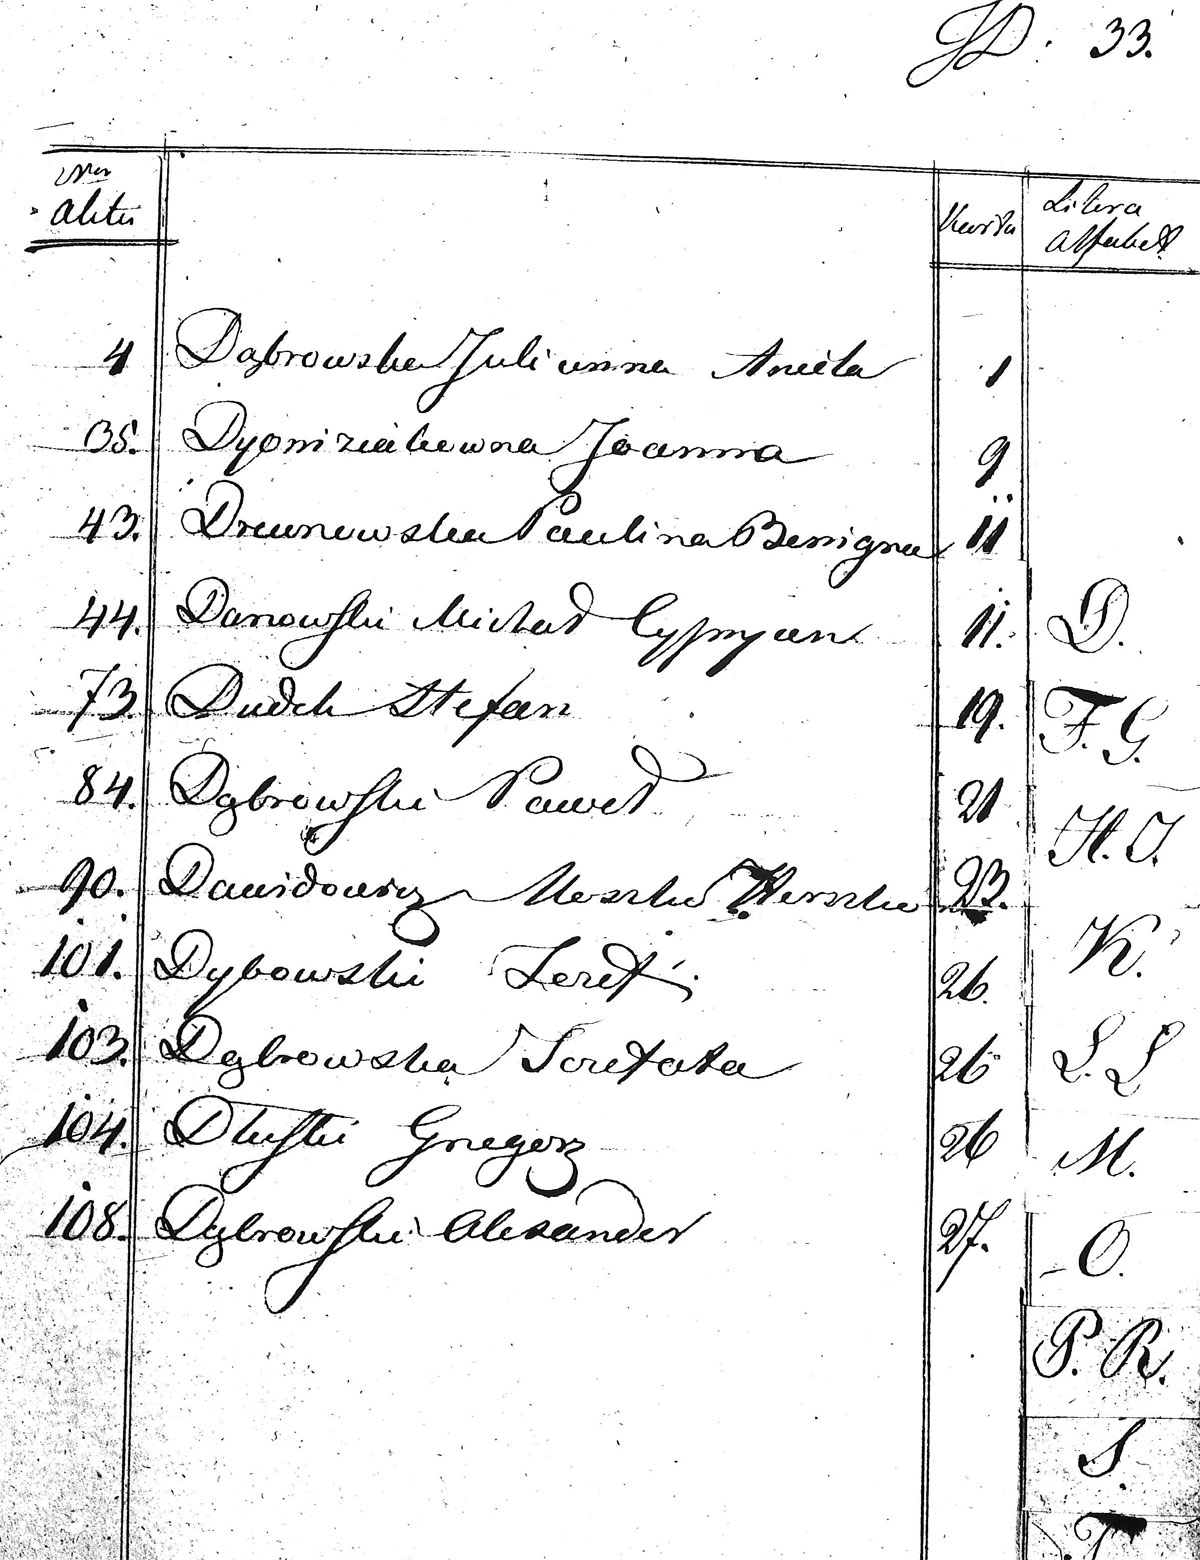 D. 33.
Nro Aktu
Karta
Litera Alfabet.
4 Dąbrowska Julianna Aniela 1
35. Dyoniziakowna Joanna 9
43. Drewnowska Paulina Benigna 11
44. Danowski Michał Cypryan 11.
73. Dudek Stefan 19.
84. Dąbrowski Paweł 21
90. Dawidowicz Moszko Herszko 23.
101. Dybowski 26.
103. Dąbrowska 26
104. Dłuski Gregorz 26
108. Dąbrowski Alexander 27.
D.
F. G.
H. J.
K.
L. Ł
M.
O.
P. R.
S.
T